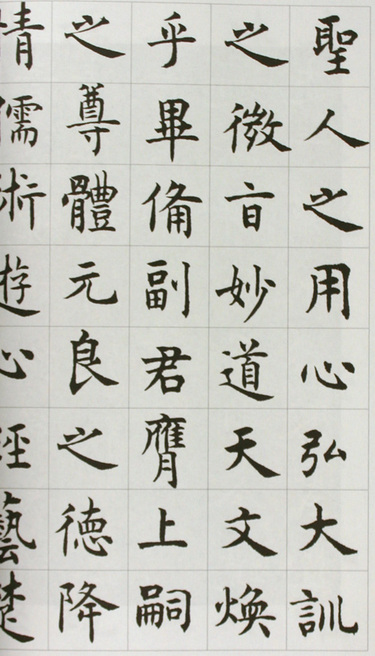 聖人之用心弘大訓
之微㫖妙道天文煥
乎畢備副君膺上嗣
之尊體元良之徳降
情儒術遊心經藝楚